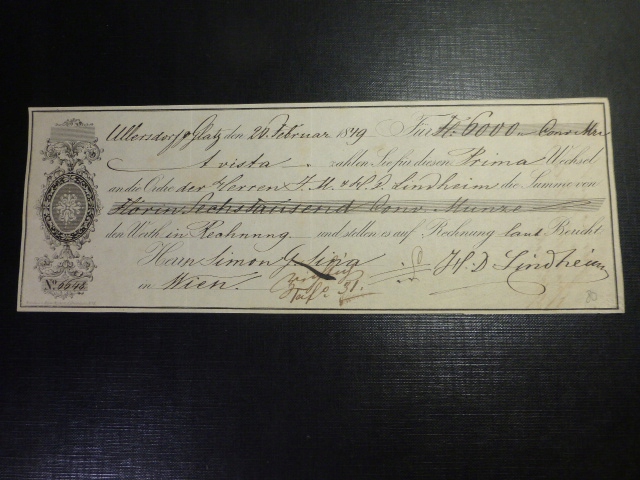 Ullersdorf p Glatz den 20. Februar 1849 Für fl. 6000 in Conv Mze
a vista zahlen Sie für diesen Prima Wechsel
an die Ordre der Herren J. M. & H. D. Lindheim die Summe von
Sechstausend Conv. Münze
den Werth in Rechnung und stellen es auf Rechnung laut Bericht
Herrn Simon G. Sina
in Wien.
H. D Lindheim
No. 6648
80